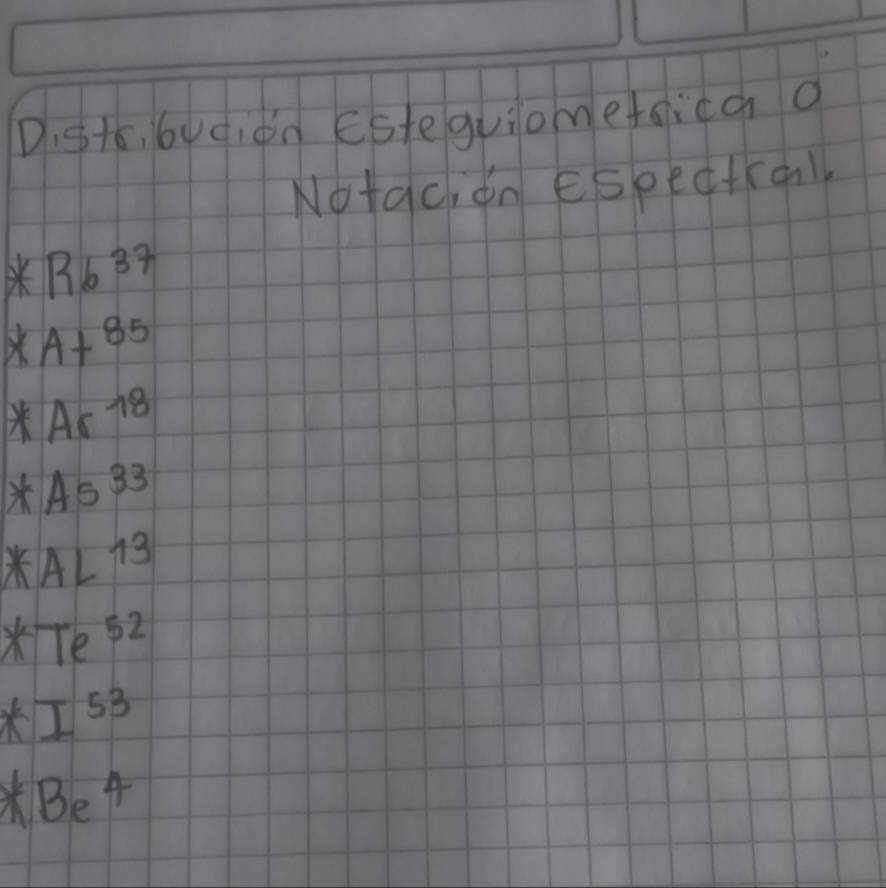 Distribución Estequiometrica o
Notación Espectral.
* Rb 37
* At 85
* Ar 18
* As 33
* AL 13
* Te 52
* I 53
* Be 4